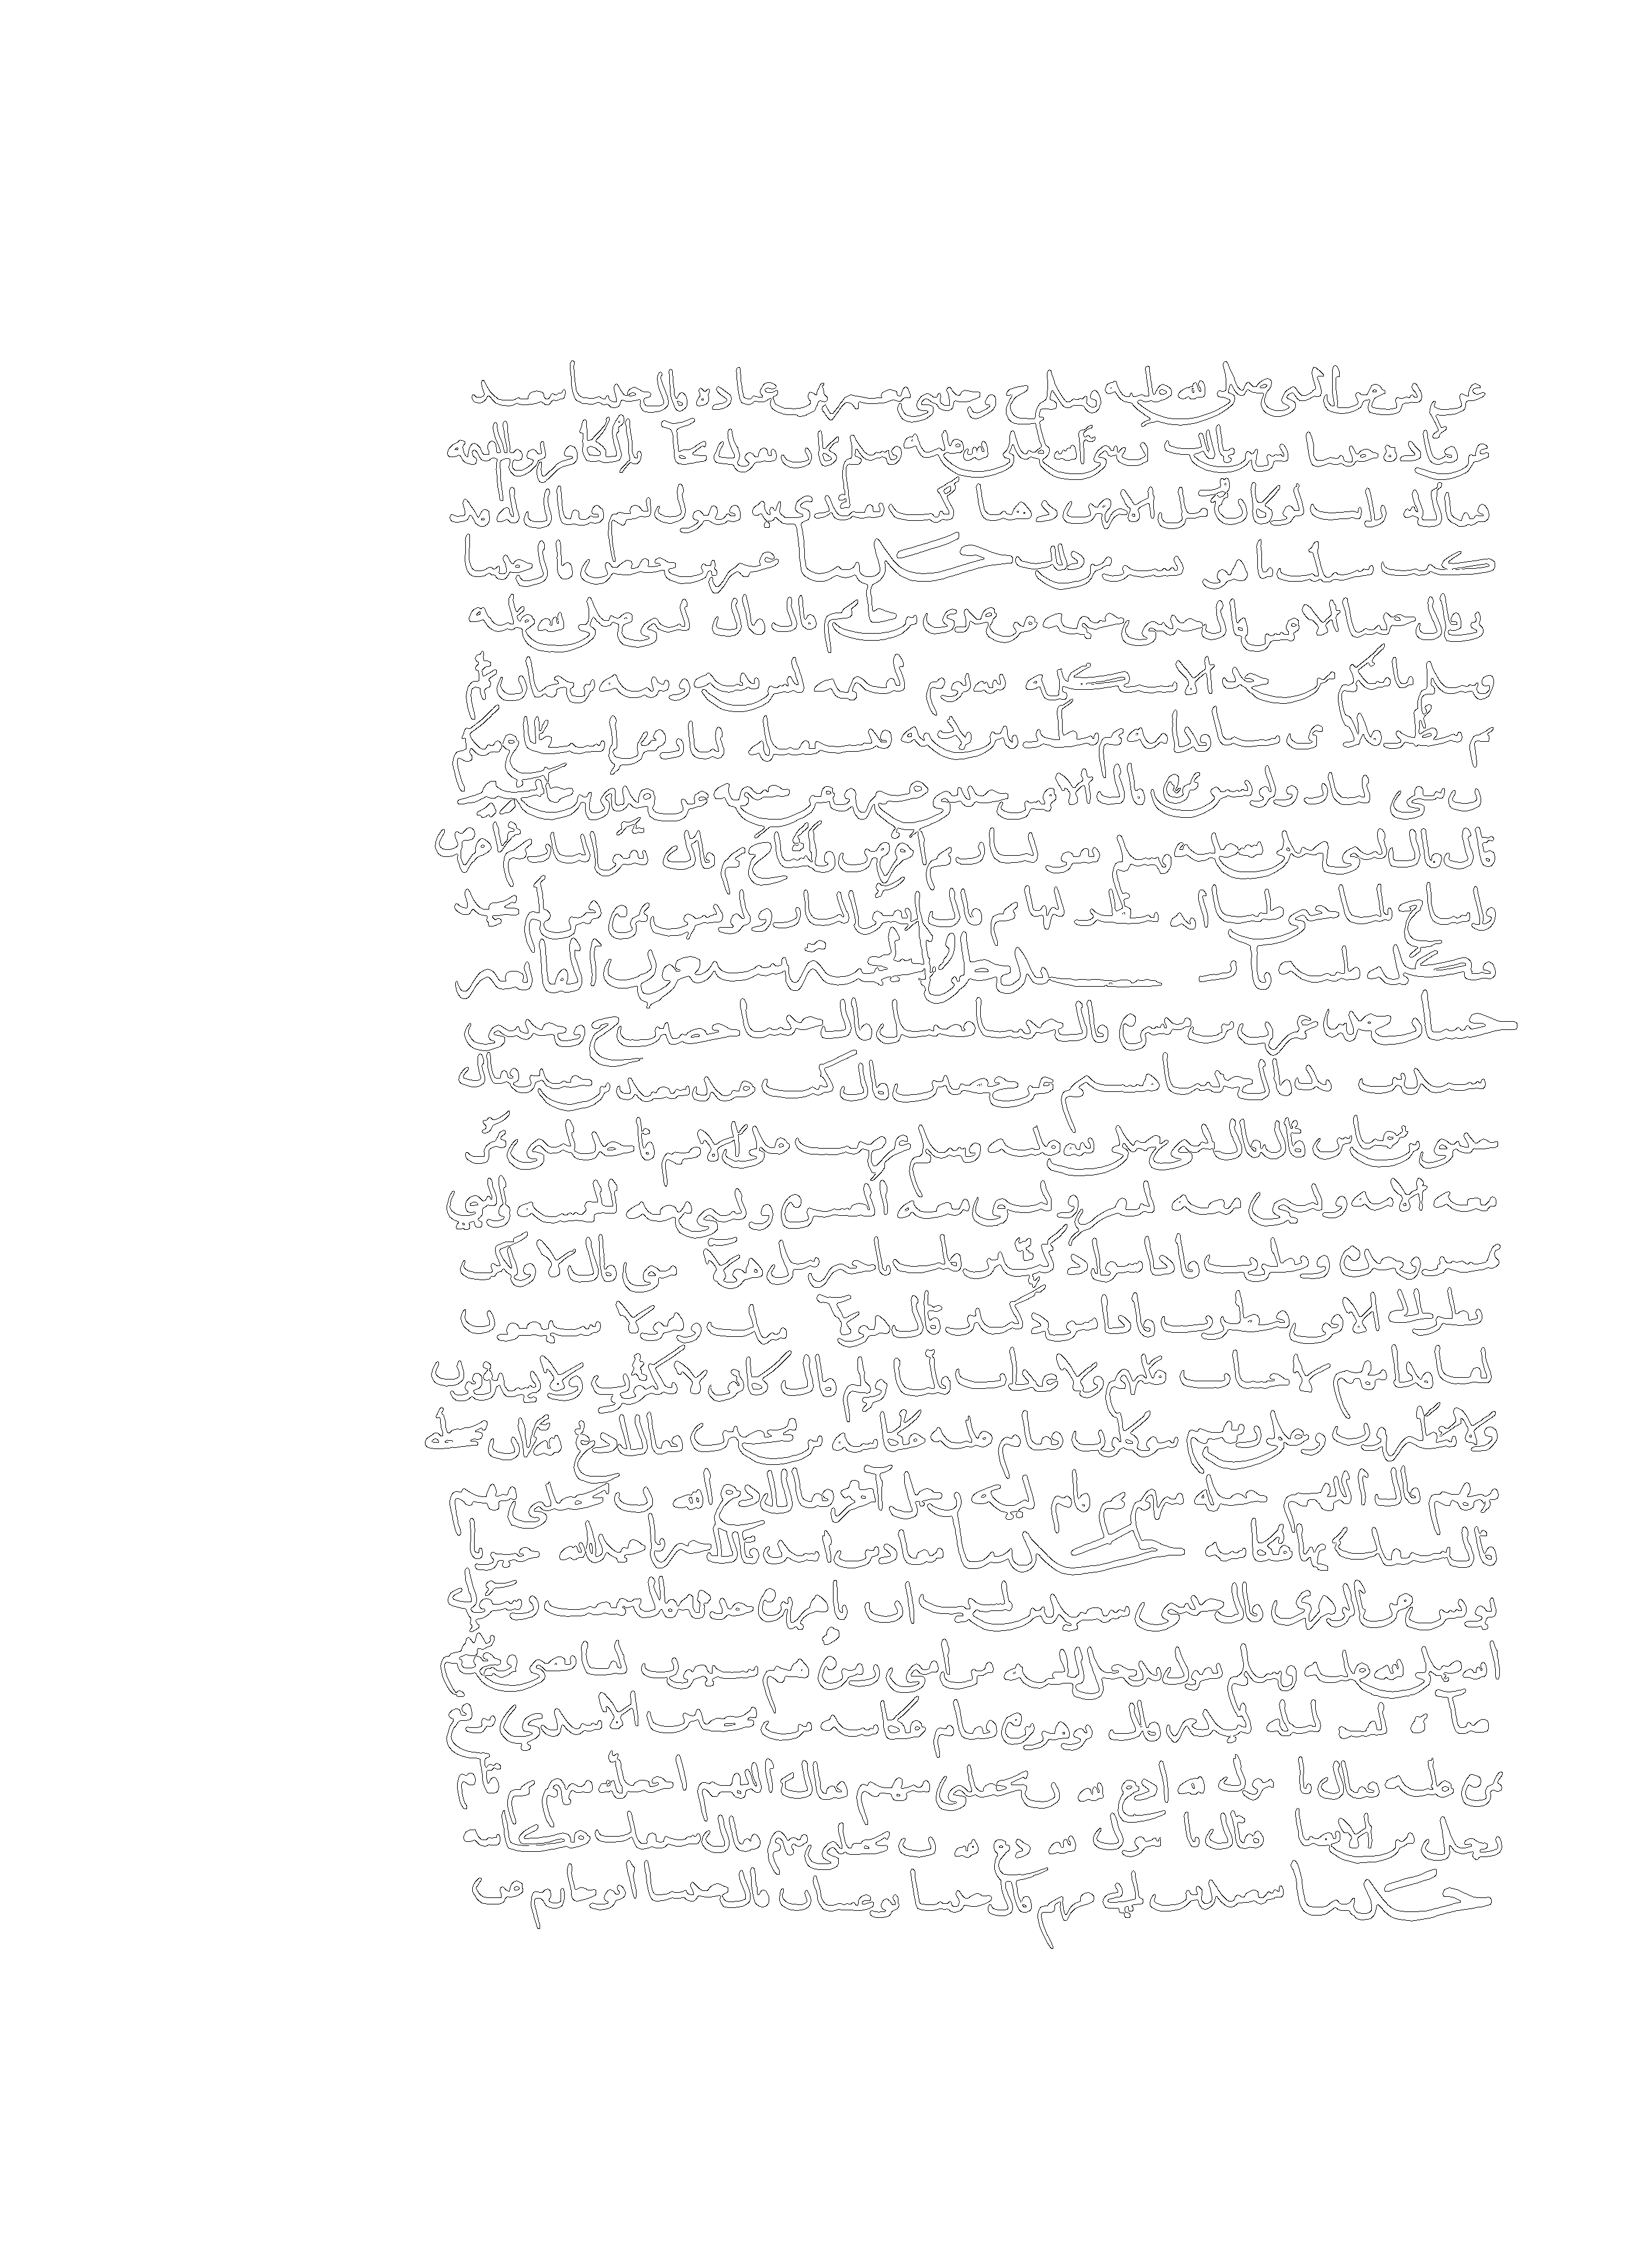 عن انس عن النبي صلى الله عليه وسلم ح وحدثني معمر بن عبادة قال حدثنا سعيد
عن قتادة حدثنا انس بن مالك ان نبي الله صلى الله عليه وسلم كان يقول يجاء بالكافر يوم القيمة
فيقال له ارايت لو كان لك مل الارض ذهبا اكنت تفتدي به فيقول نعم فيقال له قد
كنت سيلت ما هو ايسر من ذلك حدثنا عمر بن حفص قال حدثنا
ابي قال حدثنا الاعمش قال حدثني خيثمة عن عدي بن حاتم قال قال النبي صلى الله عليه
وسلم ما منكم من احد الا سيكلمه الله يوم القيمة ليس بينه وبينه ترجمان ثم
ثم ينظر فلا يرى شيا قدامه ثم ينظر بين يديه فتستقبله النار فمن استطاع منكم
ان يتقي النار ولو بشق تمرة قال الاعمش حدثني عمرو عن خيثمة عن عدي بن حاتم
قال قال النبي صلى الله عليه وسلم اتقوا النار ثم اعرض واشاح ثم قال اتقوا النار ثم اعرض
واشاح ثلثا حتى ظننا انه ينظر اليها ثم قال اتقوا النار ولو بشق تمرة فمن لم يجد
فبكلمة طيبة باب يدخل الجنة سبعون الفا بغير
حساب حدثنا عمران بن ميسرة قال حدثنا ابن فضيل قال حدثنا حصين ح وحدثني
اسيد بن زيد قال حدثنا هشيم عن حصين قال كنت عند سعيد بن جبير فقال
حدثني ابن عباس قال قال النبي صلى الله عليه وسلم عرضت علي الامم فاخذ النبي يمر
معه الامة والنبي معه النفر والنبي معه العشرة والنبي معه الخمسة والنبي
يمر وحده ونظرت فاذا سواد كثير قلت يا جبريل هولاء امتي قال لا ولكن
انظر الى الافق فنظرت فاذا سواد كثير قال هولاء امتك وهولاء سبعون
الفا قدامهم لا حساب عليهم ولا عذاب قلت ولم قال كانوا لا يكتوون ولا يسترقون
ولا يتطيرون وعلى ربهم يتوكلون فقام اليه عكاشة بن محصن فقال ادع الله ان يجعلني
منهم قال اللهم اجعله منهم ثم قام اليه رجل آخر فقال ادع الله ان يجعلني منهم
قال سبقك بها عكاشة حدثنا معاذ بن اسد قال اخبرنا عبد الله اخبرنا
يونس عن الزهري قال حدثني سعيد بن المسيب ان ابا هريرة حدثه قال سمعت رسول
الله صلى الله عليه وسلم يقول يدخل الجنة من امتي زمرة هم سبعون الفا تضي وجوههم
اضاءة القمر ليلة البدر وقال ابو هريرة فقام عكاشة بن محصن الاسدي يرفع
نمرة عليه فقال يا رسول الله ادع الله ان يجعلني منهم فقال اللهم اجعله منهم ثم قام
رجل من الانصار فقال يا رسول الله ادع الله ان يجعلني منهم فقال سبقك عكاشة
حدثنا سعيد بن ابي مريم قال حدثنا ابو غسان قال حدثنا ابو حازم عن